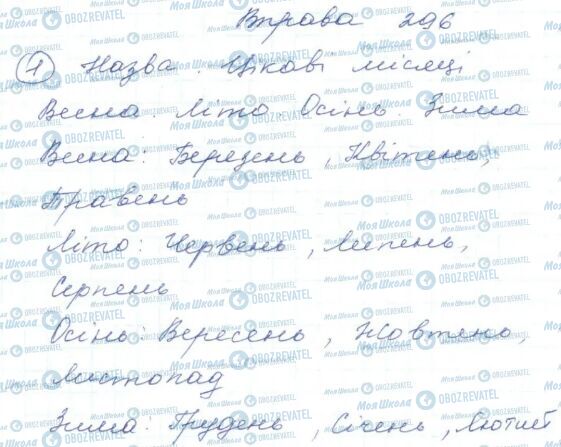 Вправа 296
1 Назва. Цікаві місяці
Весна. Літо Осінь. Зима
Весна: Березень, Квітень,
Травень
Літо: Червень, Липень,
Серпень
Осінь: Вересень, Жовтень,
Листопад
Зима: Грудень, Січень, Лютий